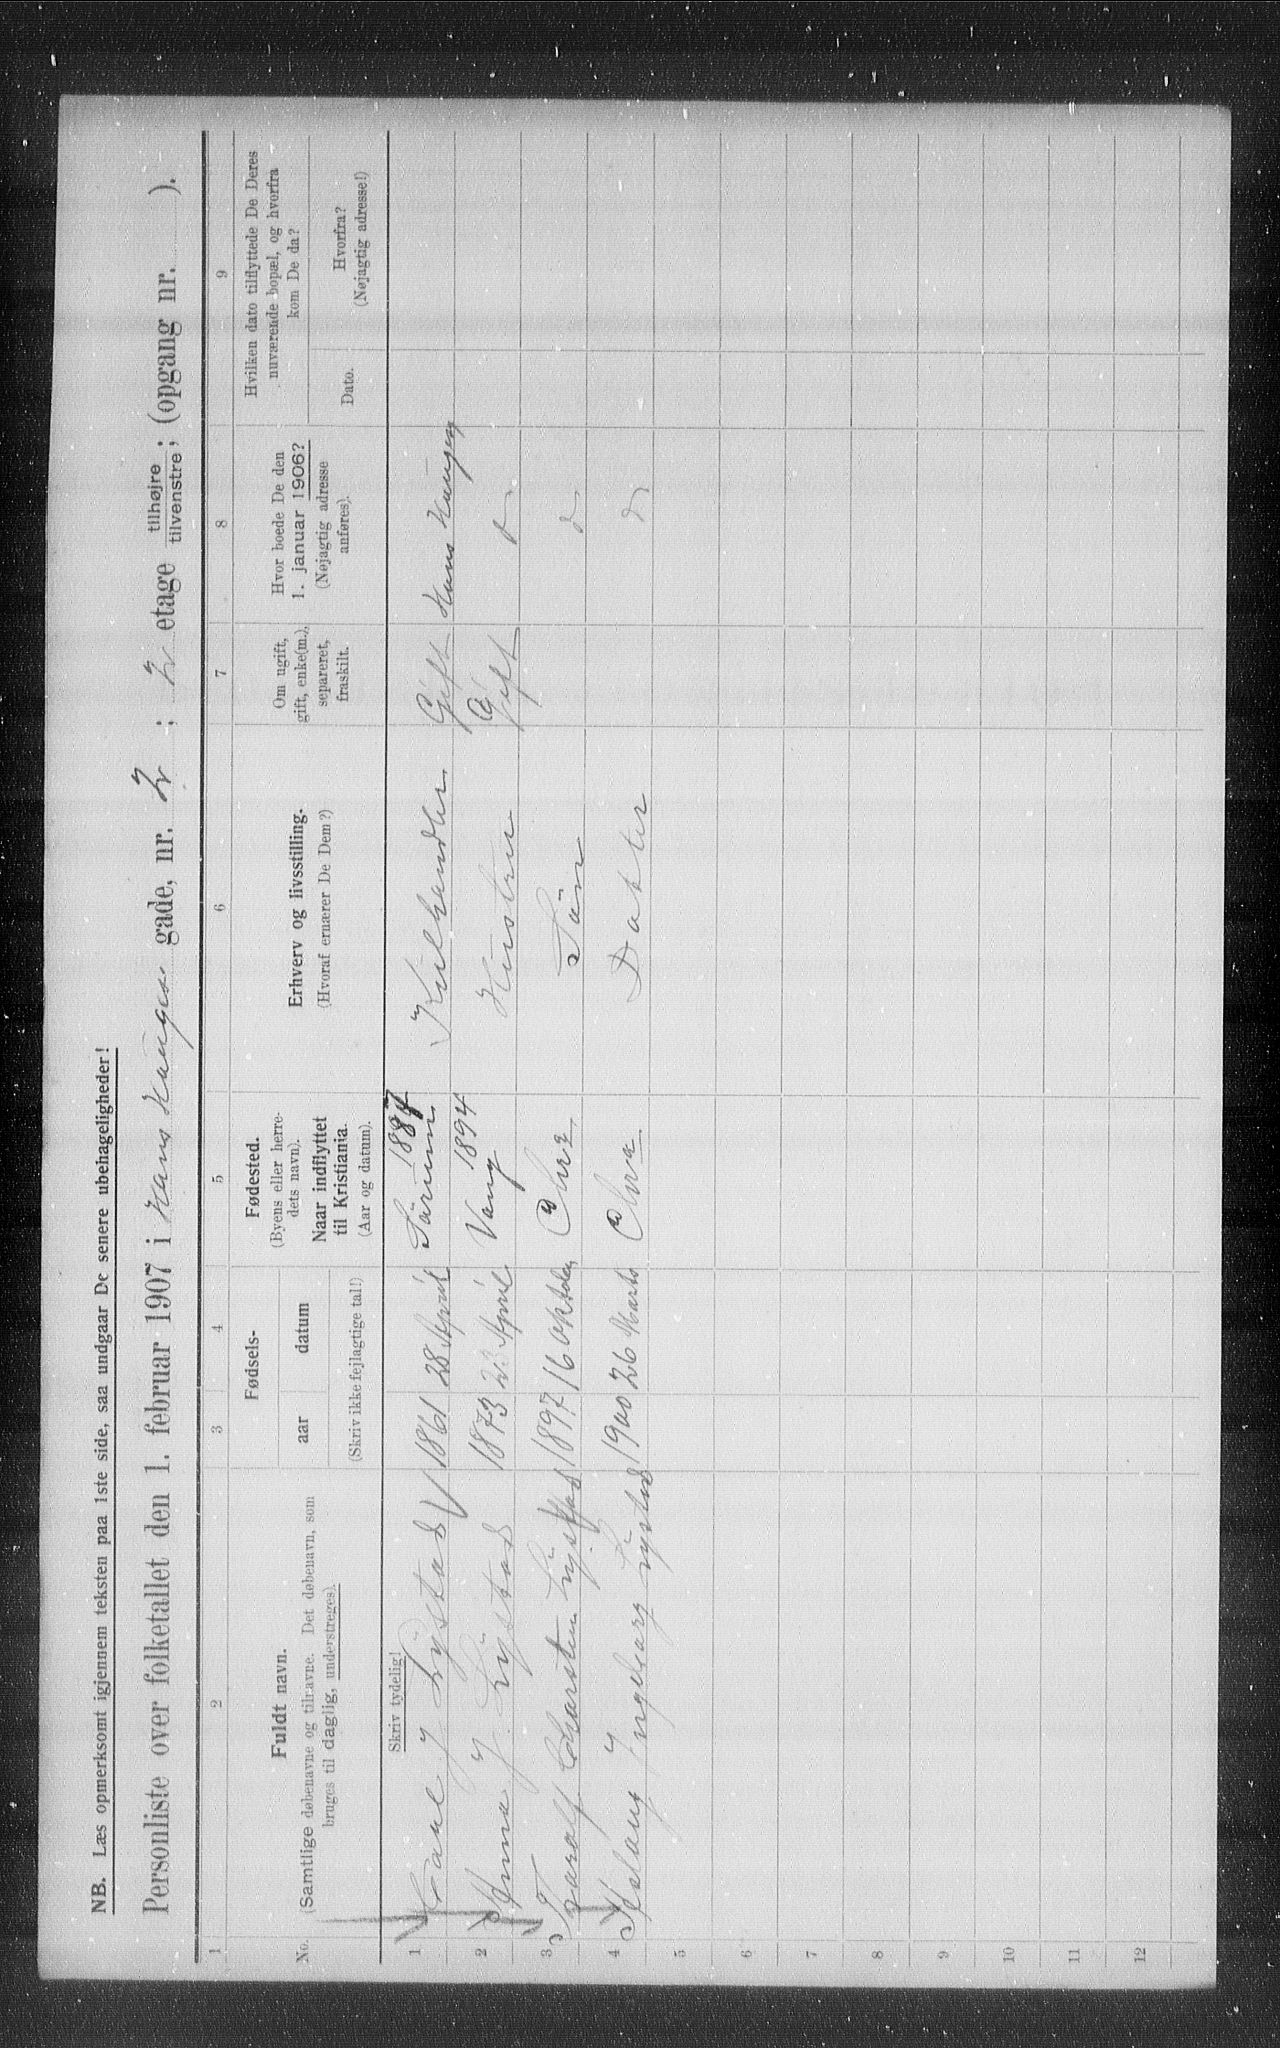 NB. Læs opmerksomt igjennem teksten paa 1ste side, saa undgaar De senere ubehageligheder!
Personliste over folketallet den 1. februar 1907 i Hans Hauges gade, nr. 2 ; 2 etage tilhøjre / tilvenstre ; (opgang nr. ).
1 2 3 4 5 6 7 8 9
No.
Fuldt navn.
(Samtlige døbenavne og tilnavne. Det døbenavn, som
bruges til daglig, understreges).
Fødsels-
aar datum
(Skriv ikke fejlagtige tal!)
Fødested.
(Byens eller herre-
dets navn).
Naar indflyttet
til Kristiania.
(Aar og datum).
Erhverv og livsstilling.
(Hvoraf ernærer De Dem?)
Om ugift,
gift, enke(m.),
separeret,
fraskilt.
Hvor boede De den
1. januar 1906?
(Nøjagtig adresse
anføres).
Hvilken dato tilflyttede De Deres
nuværende bopæl, og hvorfra
kom De da?
Dato.
Hvorfra?
(Nøjagtig adresse!)
Skriv tydelig!
1 J Lÿstad 1861 28 April Sörum 1887 Kulhandler Gift Hans Hauges
2 Anna J. Lÿstad 1873 23 April Vang 1894 Hustru Gift
3 Lÿstad 1897 16 oktober Chra Sön
4 Aslaug Ingeborg Lÿstad 1900 26 Marts Chra Datter
5
6
7
8
9
10
11
12